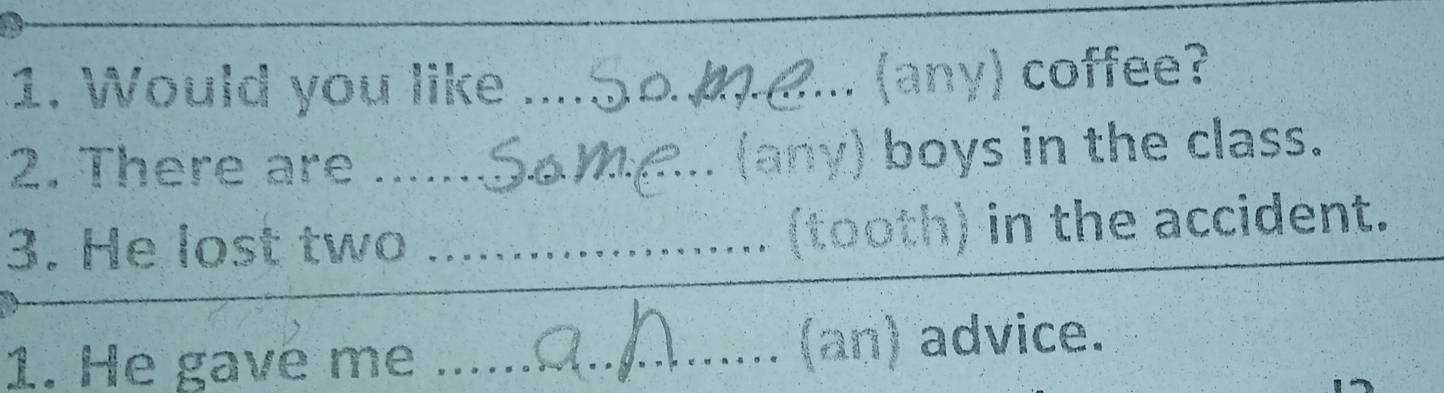 1. Would you like ....some.... (any) coffee?
2. There are ....some.... (any) boys in the class.
3. He lost two .................... (tooth) in the accident.
1. He gave me ....an.... (an) advice.